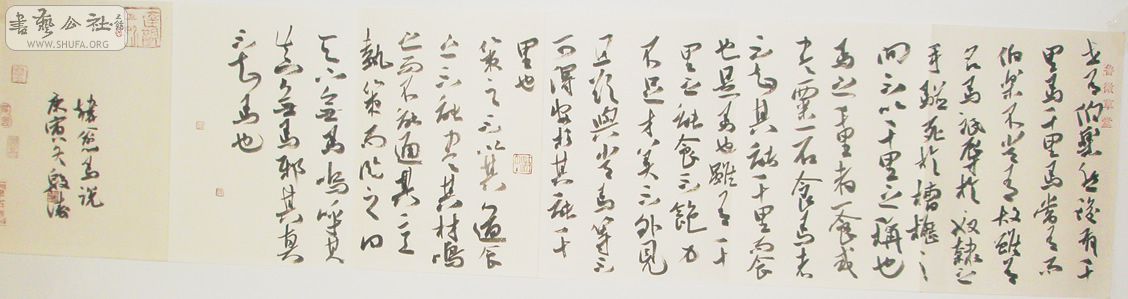 世有伯樂然後有千
里馬千里馬常有而
伯樂不常有故雖有
名馬祗辱於奴隸之
手駢死於槽櫪之
間不以千里之稱也
馬之千里者一食或
盡粟一石食馬者
不知其能千里而食
也是馬也雖有千
里之能食不飽力
不足才美不外見
且欲與常馬等不
可得安求其能千
里也
策之不以其道食
之不能盡其材鳴
之而不能通其意
執策而臨之曰
天下無馬嗚呼其
真無馬耶其真
不知馬也
韓愈馬說
庚寅冬
書藝公社
WWW.SHUFA.ORG